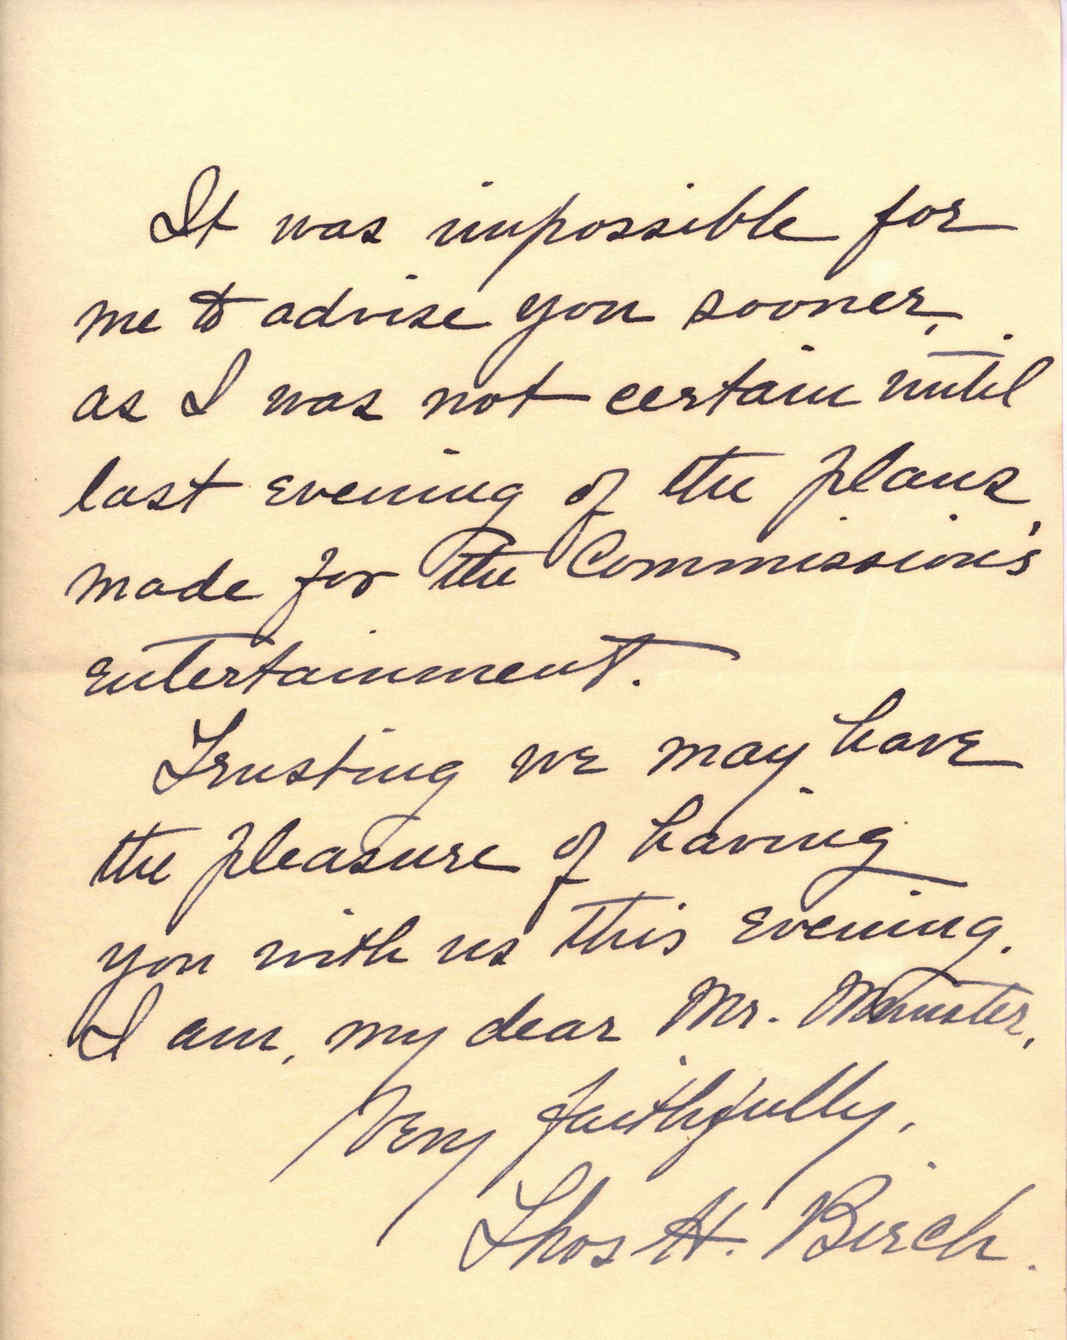 It was impossible for
me to advise you sooner,
as I was not certain until
last evening of the plans
made for the Commission's
entertainment.
Trusting we may have
the pleasure of having
you with us this evening.
I am, my dear Mr. Minister,
Very faithfully,
Thos H. Birch.